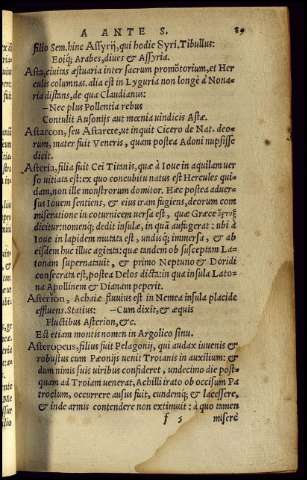 A ANTE S. 89
filio Sem. hinc Assyrij, qui hodie Syri. Tibullus:
Eoiq; Arabes, diues & Assyria.
Asta, ciuius æstuaria inter sacrum promōtorium, et Her
culis columnas. alia est in Lyguria non longè à Nona-
ria distans, de qua Claudianus:
—Nec plus Pollentia rebus
Contulit Ausonijs aut mœnia uindicis Astæ.
Astarcon, seu Astarete, ut inquit Cicero de Nat. deo-
rum, mater fuit Veneris, quam postea Adoni nupsisse
dicit.
Asteria, filia fuit Cei Titanis, quæ à Ioue in aquilam uer
so uitiata est: ex quo concubitu natus est Hercules qui
dam, non ille monstrorum domitor. Hæc postea aduer-
sus Iouem sentiens, & eius iram fugiens, deorum com
miseratione in coturnicem uersa est, quæ Græce
dicitur: nomenq; dedit insulæ, in quā aufugerat: ubi à
Ioue in lapidem mutata est, undisq; immersa, & ab
eisdem huc illuc agitata: quæ tandem ob susceptam La-
tonam supernatauit, & primo Neptuno & Doridi
consecrata est, postea Delos dicta: in qua insula Lato-
na Apollinem & Dianam peperit.
Asterion, Achaiæ fluuius est in Nemea insula placide
effluens. Statius: —Cum dixit, & æquis
Fluctibus Asterion, &c.
Est etiam montis nomen in Argolico sinu.
Asteropæus, filius fuit Pelagonij, qui audax iuuenis &
robustus cum Pæonijs uenit Troianis in auxilium: &
dum nimis suis uiribus confideret, undecimo die post-
quam ad Troiam uenerat, Achilli irato ob occisum Pa
troclum, occurrere ausus fuit, eundemq; & lacessere,
& inde armis contendere non extimuit: à quo tamen
f 5 miserè